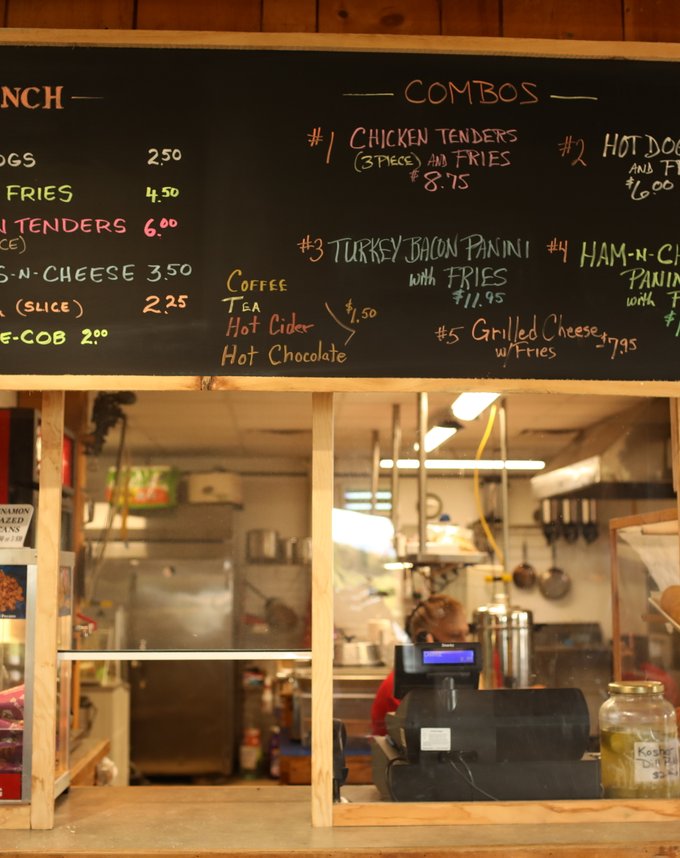 NCH
OGS 2.50
FRIES 4.50
N TENDERS 6.00
CE)
S-N-CHEESE 3.50
(SLICE) 2.25
E-COB 2.00
COFFEE
TEA
Hot Cider
Hot Chocolate
$1.50
COMBOS
#1 CHICKEN TENDERS
(3 PIECE) AND FRIES
$8.75
#2 HOT DOG
AND F
$6.00
#3 TURKEY BACON PANINI
with FRIES
$11.95
#4 HAM-N-CH
PANIN
with F
$1
#5 Grilled Cheese $7.95
w/Fries
NNAMON
AZED
CANS
Kosher
Dill